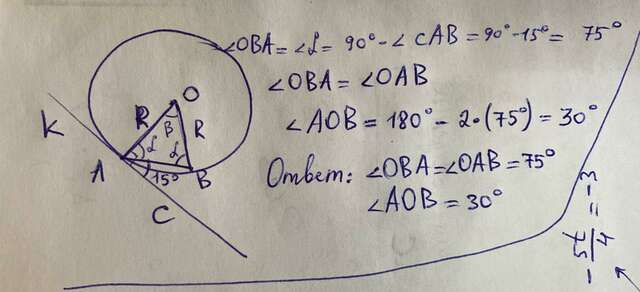 ∠OBA = ∠L = 90° - ∠ CAB = 90° - 15° = 75°
∠OBA = ∠OAB
∠AOB = 180° - 2·(75°) = 30°
Ответ: ∠OBA = ∠OAB = 75°
∠AOB = 30°
K
R
O
B
R
L
L
A
15°
B
C